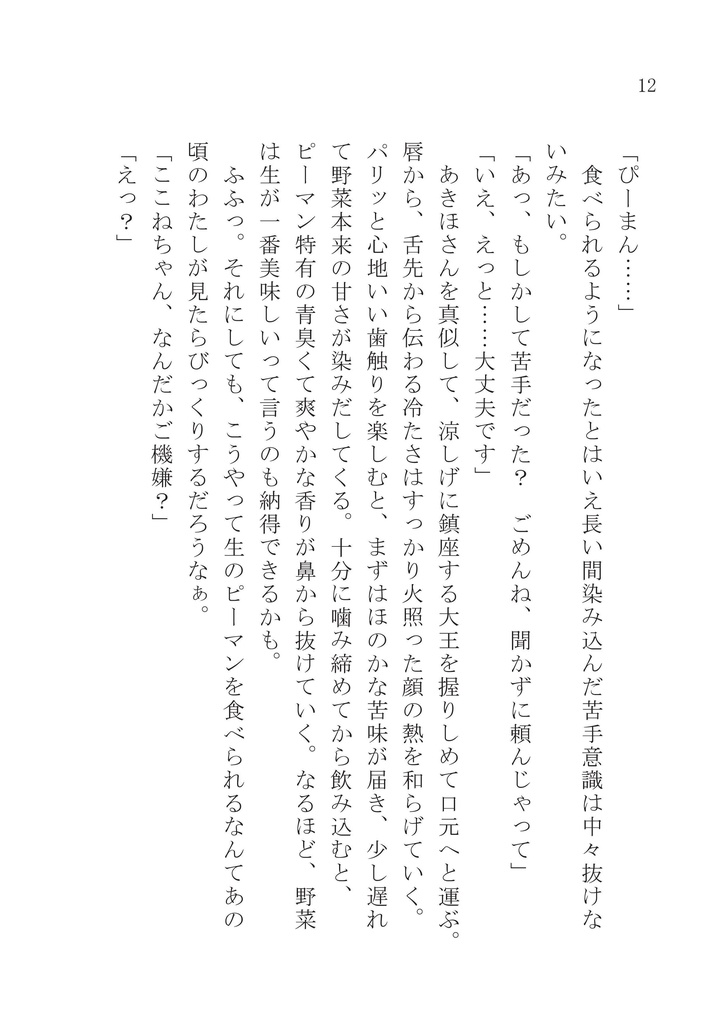 12
「ぴーまん……」
　食べられるようになったとはいえ長い間染み込んだ苦手意識は中々抜けな
いみたい。
「あっ、もしかして苦手だった？　ごめんね、聞かずに頼んじゃって」
「いえ、えっと……大丈夫です」
　あきほさんを真似して、涼しげに鎮座する大王を握りしめて口元へと運ぶ。
唇から、舌先から伝わる冷たさはすっかり火照った顔の熱を和らげていく。
パリッと心地いい歯触りを楽しむと、まずはほのかな苦味が届き、少し遅れ
て野菜本来の甘さが染みだしてくる。十分に噛み締めてから飲み込むと、
ピーマン特有の青臭くて爽やかな香りが鼻から抜けていく。なるほど、野菜
は生が一番美味しいって言うのも納得できるかも。
　ふふっ。それにしても、こうやって生のピーマンを食べられるなんてあの
頃のわたしが見たらびっくりするだろうなぁ。
「ここねちゃん、なんだかご機嫌？」
「えっ？」